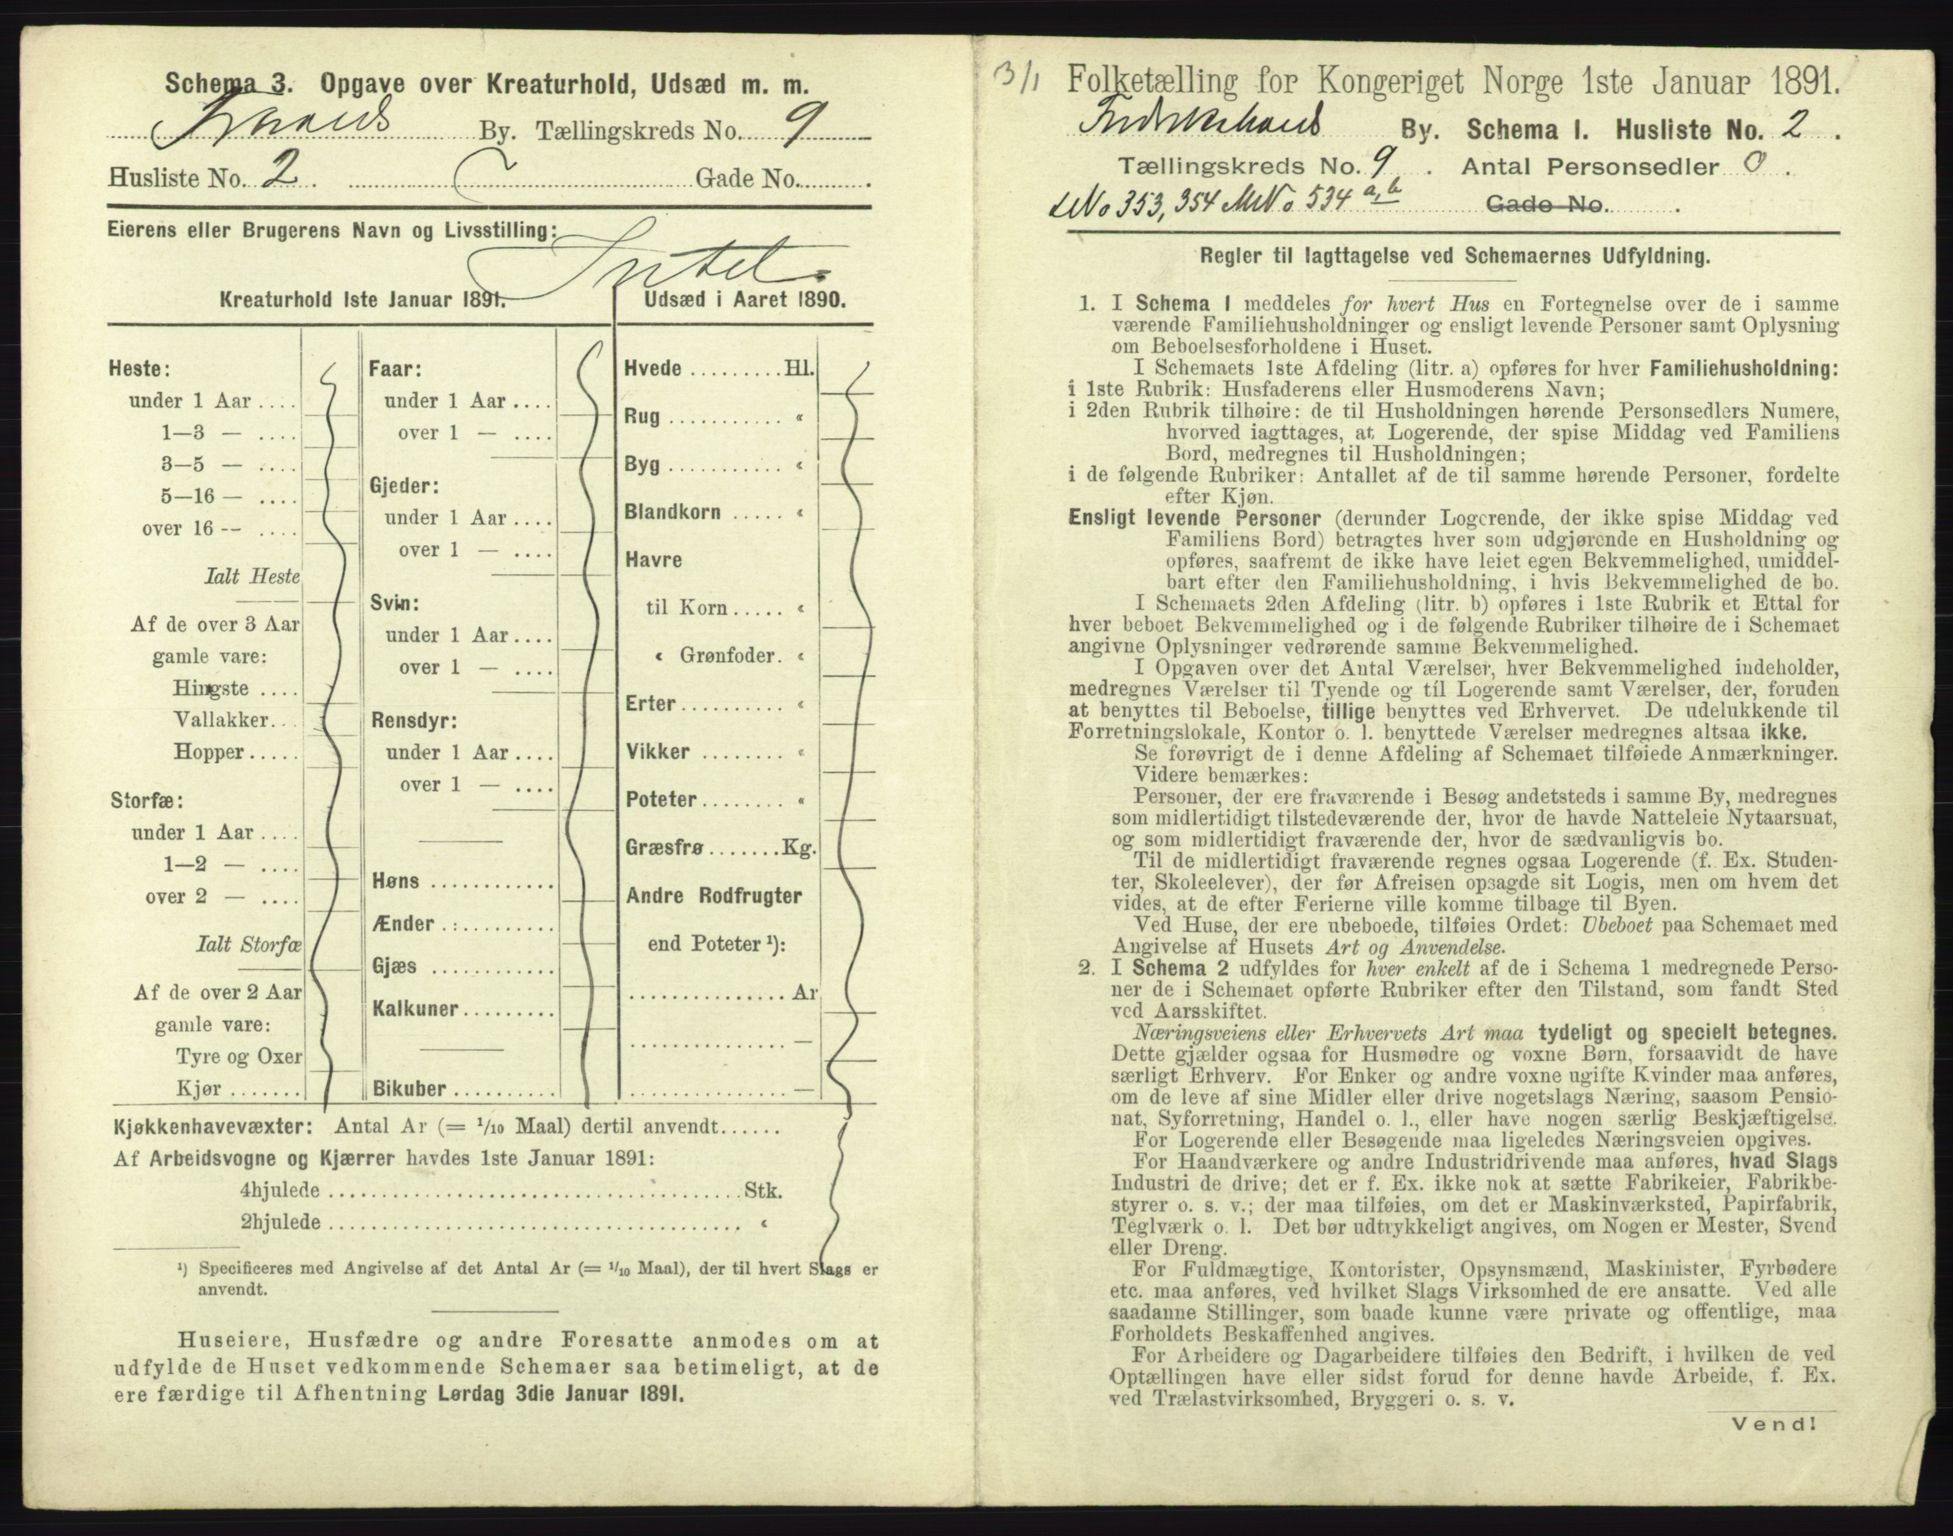 Schema 3. Opgave over Kreaturhold, Udsæd m. m.
By. Tællingskreds No. 9
Husliste No. 2. Gade No. .
Eierens eller Brugerens Navn og Livsstilling:
Intet.
Kreaturhold 1ste Januar 1891.
Heste:
under 1 Aar ....
1—3 — ....
3—5 — ....
5—16 — ....
over 16 -- ....
Ialt Heste
Af de over 3 Aar
gamle vare:
Hingste ....
Vallakker...
Hopper.....
Storfæ:
under 1 Aar ....
1—2 — ....
over 2 — ....
Ialt Storfæ
Af de over 2 Aar
gamle vare:
Tyre og Oxer
Kjør .......
Faar:
under 1 Aar ....
over 1 — ....
Gjeder:
under 1 Aar ....
over 1 — ....
Svin:
under 1 Aar ....
over 1 — ....
Rensdyr:
under 1 Aar ....
over 1 — ....
Høns ............
Ænder .:.........
Gjæs ............
Kalkuner.........
Bikuber ..........
Udsæd i Aaret 1890.
Hvede .........Hl.
Rug ........... «
Byg ........... «
Blandkorn ..... «
Havre
til Korn ..... «
« Grønfoder. «
Erter.......... «
Vikker ........ «
Poteter........ «
Græsfrø.......Kg.
Andre Rodfrugter
end Poteter ¹):
...............Ar
............... —
............... —
Kjøkkenhavevæxter: Antal Ar (= 1/10 Maal) dertil anvendt......
Af Arbeidsvogne og Kjærrer havdes 1ste Januar 1891:
4hjulede ........................................Stk.
2hjulede ........................................ «
¹) Specificeres med Angivelse af det Antal Ar (= 1/10 Maal), der til hvert Slags er
anvendt.
Huseiere, Husfædre og andre Foresatte anmodes om at
udfylde de Huset vedkommende Schemaer saa betimeligt, at de
ere færdige til Afhentning Lørdag 3die Januar 1891.
3/1 Folketælling for Kongeriget Norge 1ste Januar 1891.
By. Schema I. Husliste No. 2.
Tællingskreds No. 9. Antal Personsedler 0.
No 353, 354 MNo 534 a,b Gade No. .
Regler til Iagttagelse ved Schemaernes Udfyldning.
1. I Schema I meddeles for hvert Hus en Fortegnelse over de i samme
værende Familiehusholdninger og ensligt levende Personer samt Oplysning
om Beboelsesforholdene i Huset.
I Schemaets 1ste Afdeling (litr. a) opføres for hver Familiehusholdning:
i 1ste Rubrik: Husfaderens eller Husmoderens Navn;
i 2den Rubrik tilhøire: de til Husholdningen hørende Personsedlers Numere,
hvorved iagttages, at Logerende, der spise Middag ved Familiens
Bord, medregnes til Husholdningen;
i de følgende Rubriker: Antallet af de til samme hørende Personer, fordelte
efter Kjøn.
Ensligt levende Personer (derunder Logerende, der ikke spise Middag ved
Familiens Bord) betragtes hver som udgjørende en Husholdning og
opføres, saafremt de ikke have leiet egen Bekvemmelighed, umiddel-
bart efter den Familiehusholdning, i hvis Bekvemmelighed de bo.
I Schemaets 2den Afdeling (litr. b) opføres i 1ste Rubrik et Ettal for
hver beboet Bekvemmelighed og i de følgende Rubriker tilhøire de i Schemaet
angivne Oplysninger vedrørende samme Bekvemmelighed.
I Opgaven over det Antal Værelser, hver Bekvemmelighed indeholder,
medregnes Værelser til Tyende og til Logerende samt Værelser, der, foruden
at benyttes til Beboelse, tillige benyttes ved Erhvervet. De udelukkende til
Forretningslokale, Kontor o. l. benyttede Værelser medregnes altsaa ikke.
Se forøvrigt de i denne Afdeling af Schemaet tilføiede Anmærkninger.
Videre bemærkes:
Personer, der ere fraværende i Besøg andetsteds i samme By, medregnes
som midlertidigt tilstedeværende der, hvor de havde Natteleie Nytaarsnat,
og som midlertidigt fraværende der, hvor de sædvanligvis bo.
Til de midlertidigt fraværende regnes ogsaa Logerende (f. Ex. Studen-
ter, Skoleelever), der før Afreisen opsagde sit Logis, men om hvem det
vides, at de efter Ferierne ville komme tilbage til Byen.
Ved Huse, der ere ubeboede, tilføies Ordet: Ubeboet paa Schemaet med
Angivelse af Husets Art og Anvendelse.
2. I Schema 2 udfyldes for hver enkelt af de i Schema 1 medregnede Perso-
ner de i Schemaet opførte Rubriker efter den Tilstand, som fandt Sted
ved Aarsskiftet.
Næringsveiens eller Erhvervets Art maa tydeligt og specielt betegnes.
Dette gjælder ogsaa for Husmødre og voxne Børn, forsaavidt de have
særligt Erhverv. For Enker og andre voxne ugifte Kvinder maa anføres,
om de leve af sine Midler eller drive nogetslags Næring, saasom Pensio-
nat, Syforretning, Handel o. l., eller have nogen særlig Beskjæftigelse.
For Logerende eller Besøgende maa ligeledes Næringsveien opgives.
For Haandværkere og andre Industridrivende maa anføres, hvad Slags
Industri de drive; det er f. Ex. ikke nok at sætte Fabrikeier, Fabrikbe-
styrer o. s. v.; der maa tilføies, om det er Maskinværksted, Papirfabrik,
Teglværk o. l. Det bør udtrykkeligt angives, om Nogen er Mester, Svend
eller Dreng.
For Fuldmægtige, Kontorister, Opsynsmænd, Maskinister, Fyrbødere
etc. maa anføres, ved hvilket Slags Virksomhed de ere ansatte. Ved alle
saadanne Stillinger, som baade kunne være private og offentlige, maa
Forholdets Beskaffenhed angives.
For Arbeidere og Dagarbeidere tilføies den Bedrift, i hvilken de ved
Optællingen have eller sidst forud for denne havde Arbeide, f. Ex.
ved Trælastvirksomhed, Bryggeri o. s. v.
Vend!